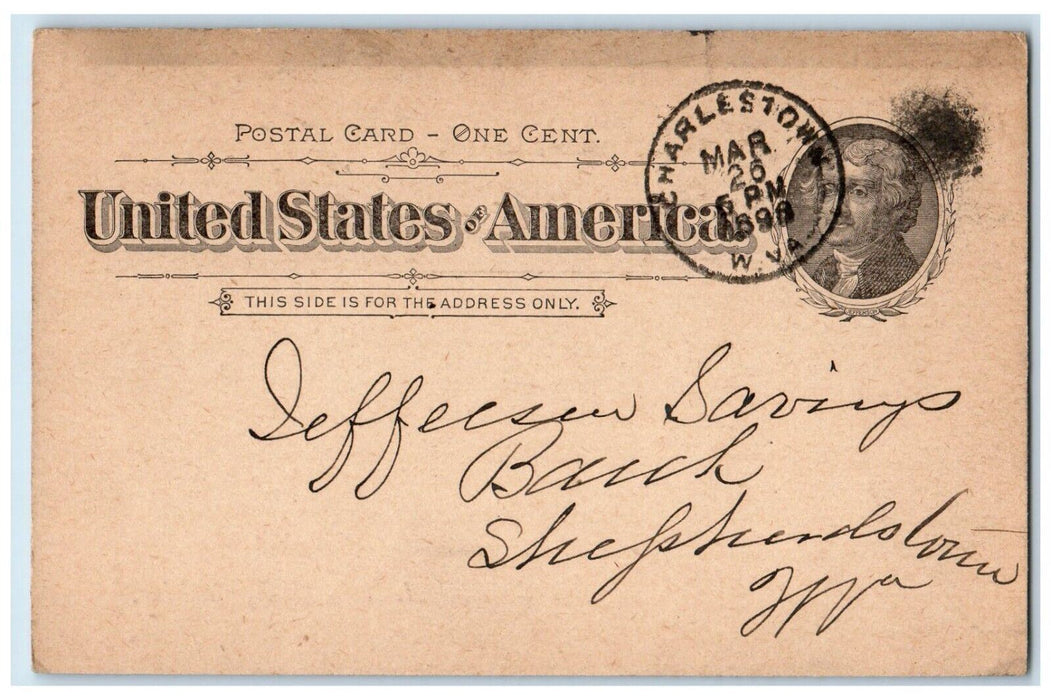 POSTAL CARD - ONE CENT.
United States of America.
THIS SIDE IS FOR THE ADDRESS ONLY.
CHARLESTOWN
MAR
26
5 PM
W. VA.
JEFFERSON
Jefferson Savings
Bank
Shepherdstown
W Va